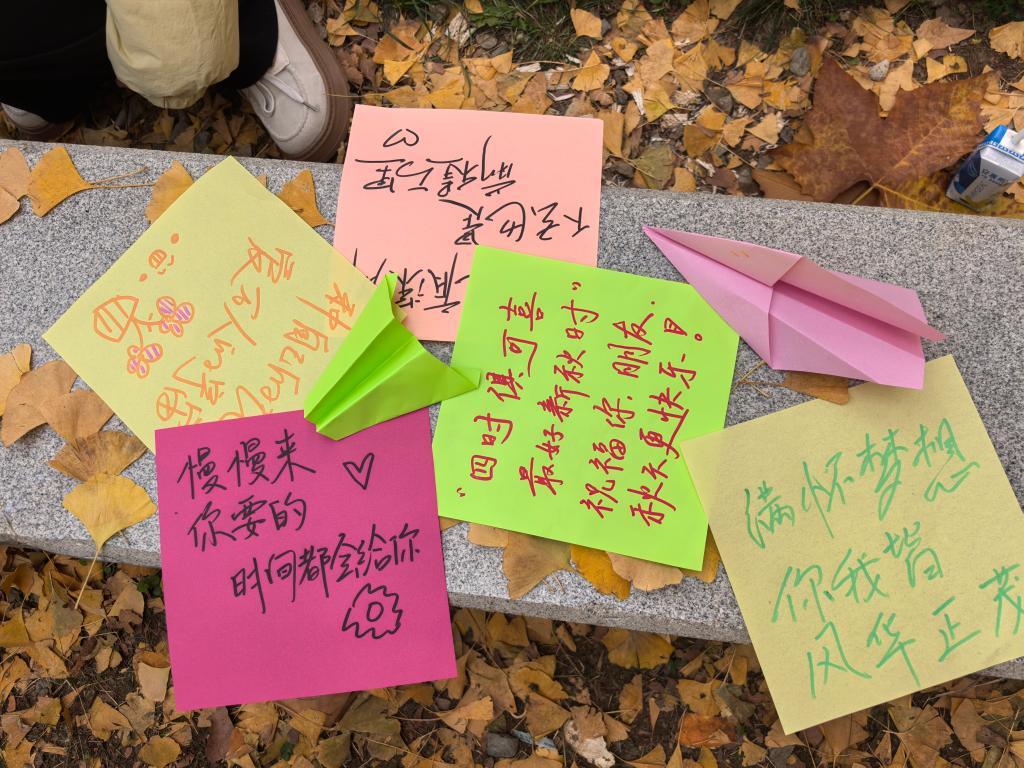 前程万里
种自己的
慢慢来
你要的
时间都会给你
“四时俱可喜
最好新秋时”
祝福你,朋友.
秋天更快乐一日!
满怀梦想
你我皆
风华正茂